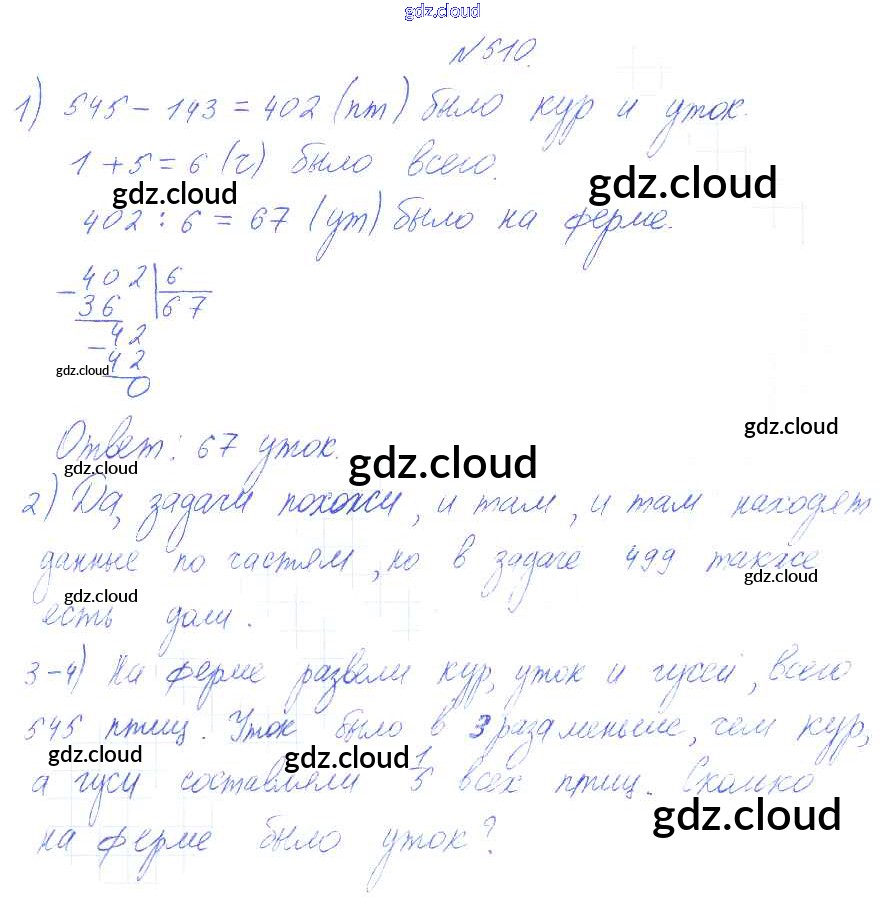 gdz.cloud
№510.
1) 545 - 143 = 402 (пт) было кур и уток.
1 + 5 = 6 (ч) было всего.
gdz.cloud
gdz.cloud
402 : 6 = 67 (ут) было на ферме.
gdz.cloud
- 402 | 6
36 | 67
- 42
42
gdz.cloud
0
gdz.cloud
Ответ: 67 уток.
gdz.cloud
gdz.cloud
2) Да, задачи похожи, и там, и там находят
данные по частям, но в задаче 499 также
gdz.cloud
gdz.cloud
есть доли.
3-4) На ферме развели кур, уток и гусей, всего
545 птиц. Уток было в 3 раза меньше, чем кур,
gdz.cloud
gdz.cloud
а гуси составляли 1/5 всех птиц. Сколько
gdz.cloud
на ферме было уток?